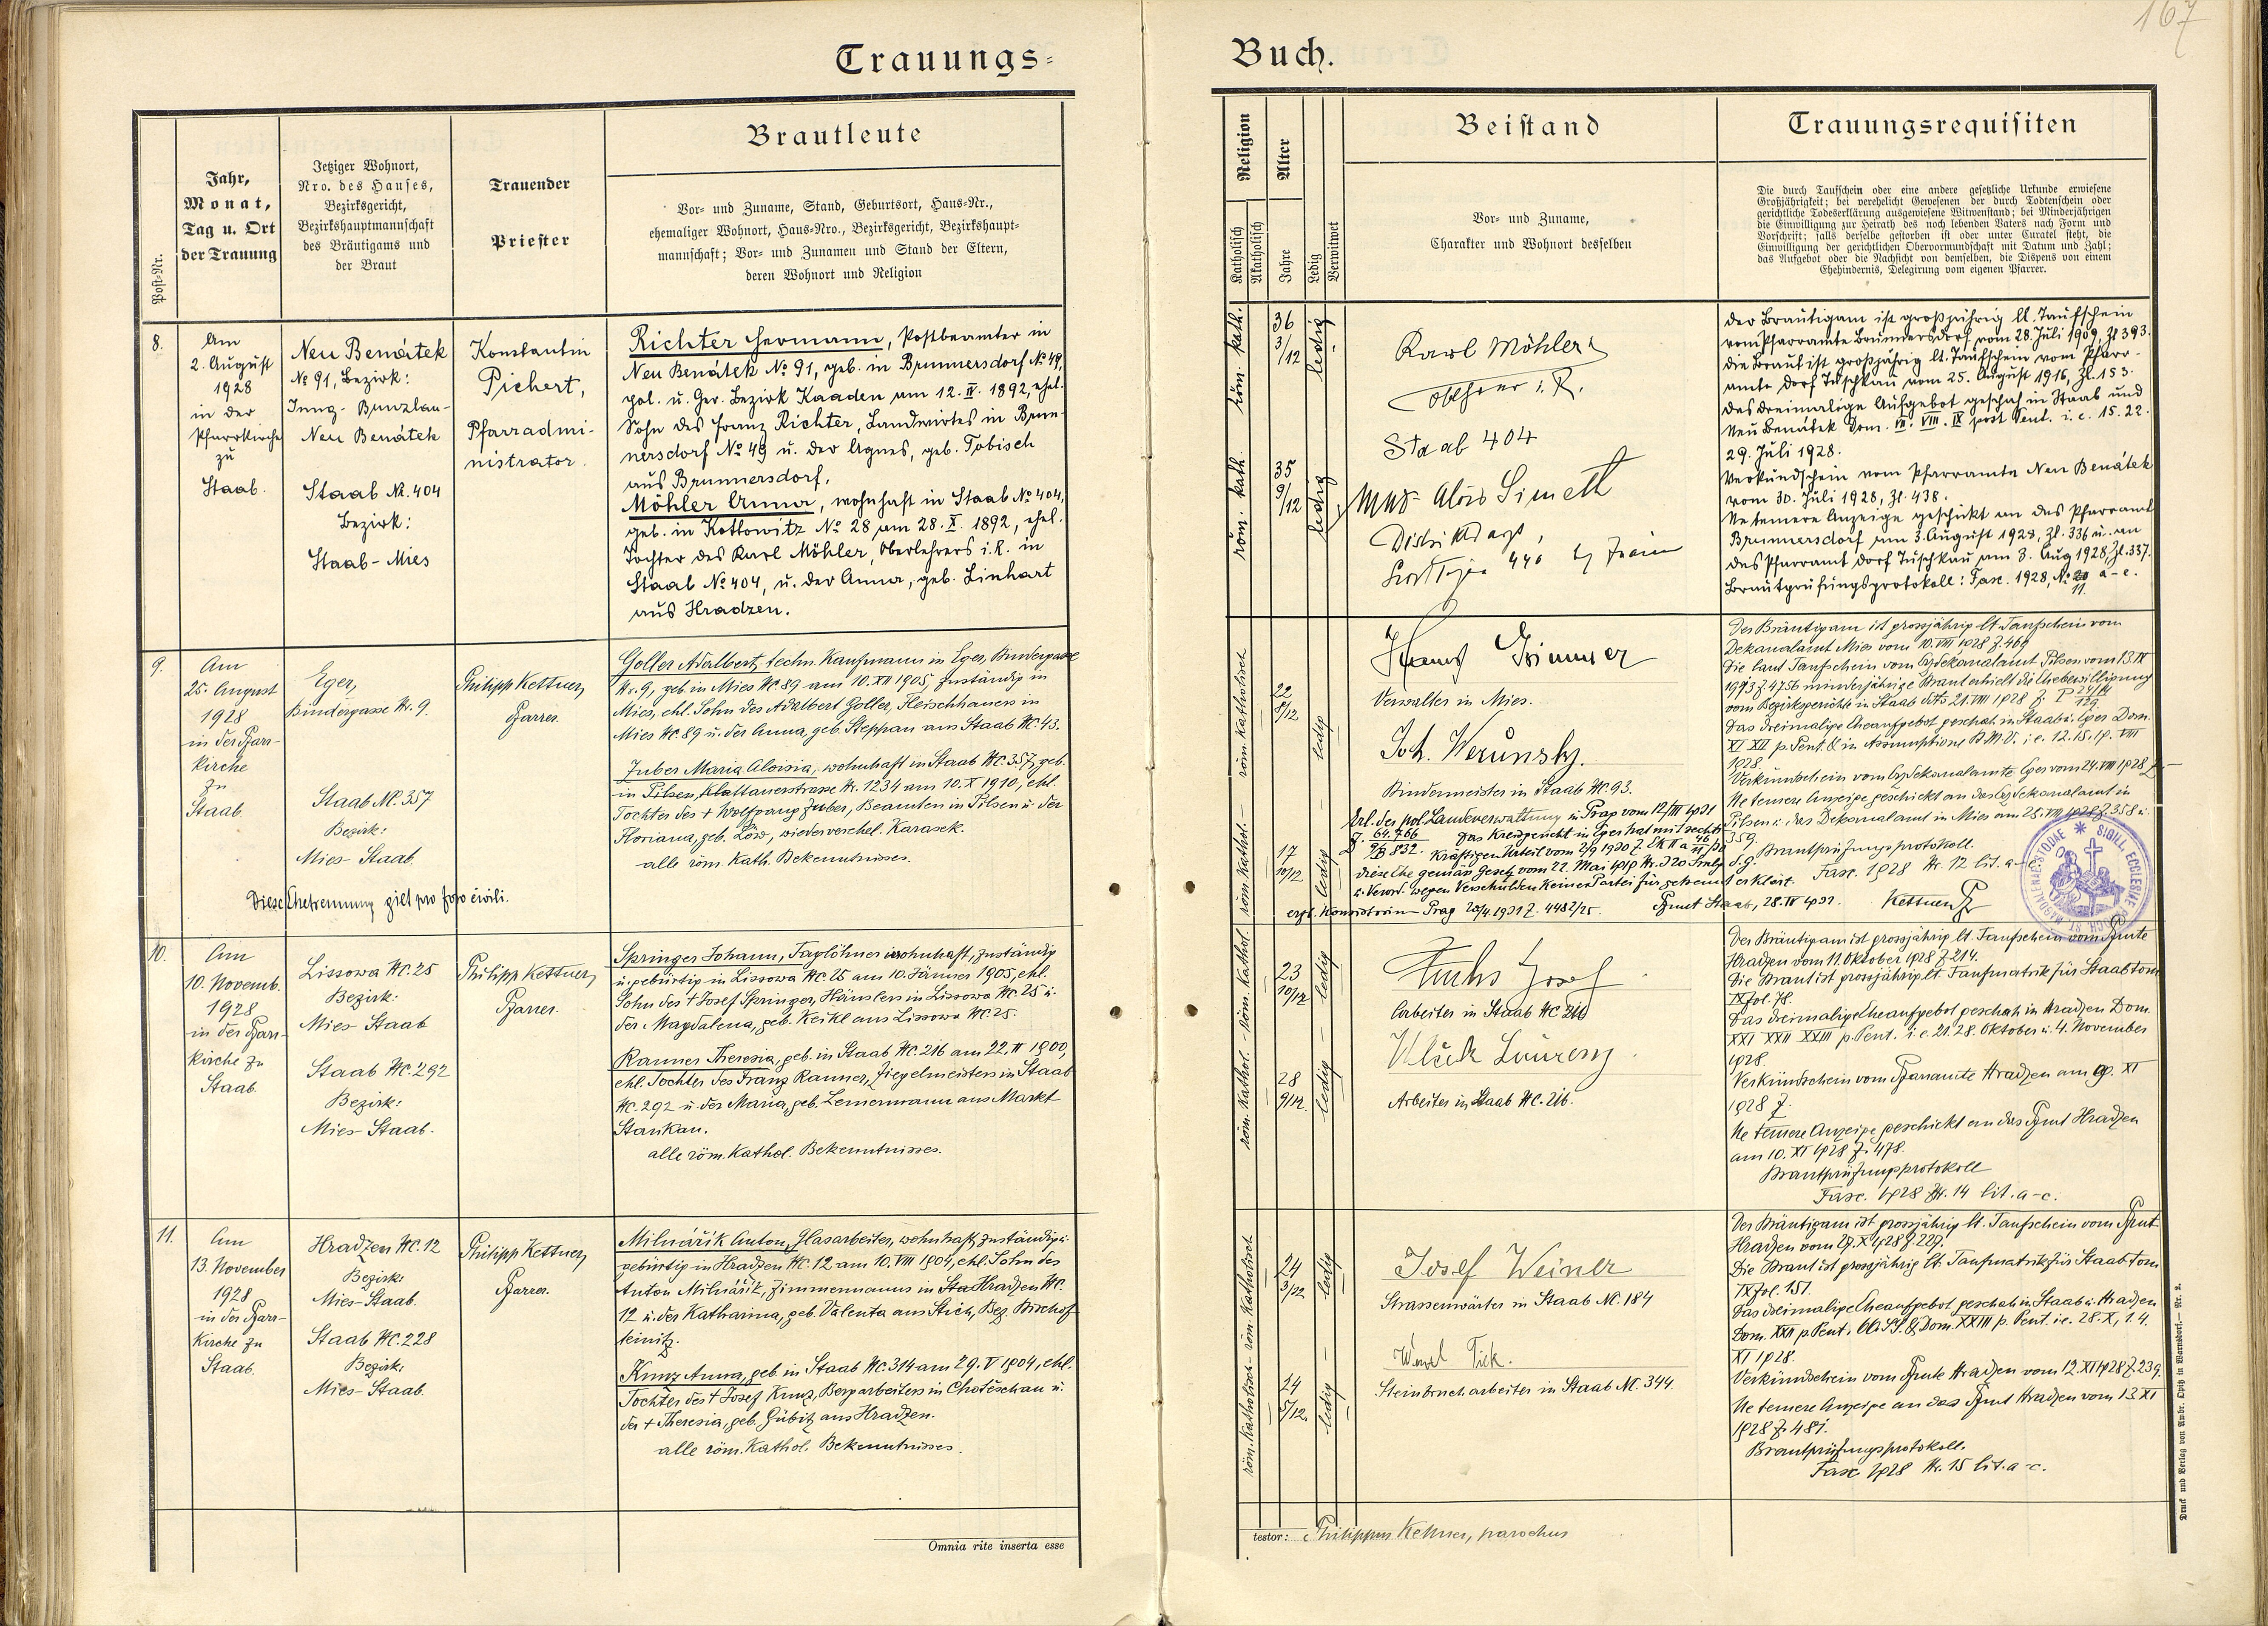 167
Trauungs=
Buch.
Post-Nr.
Jahr,
Monat,
Tag u. Ort
der Trauung
Jetziger Wohnort,
Nro. des Hauses,
Bezirksgericht,
Bezirkshauptmannschaft
des Bräutigams und
der Braut
Trauender
Priester
Brautleute
Vor- und Zuname, Stand, Geburtsort, Haus-Nr.,
ehemaliger Wohnort, Haus-Nro., Bezirksgericht, Bezirkshaupt-
mannschaft; Vor- und Zunamen und Stand der Eltern,
deren Wohnort und Religion
Religion
Katholisch
Akatholisch
Alter
Jahre
Ledig
Verwitwet
Beistand
Vor- und Zuname,
Charakter und Wohnort desselben
Trauungsrequisiten
Die durch Taufschein oder eine andere gesetzliche Urkunde erwiesene
Großjährigkeit; bei verehelicht Gewesenen der durch Todtenschein oder
gerichtliche Todeserklärung ausgewiesene Witwenstand; bei Minderjährigen
die Einwilligung zur Heirath des noch lebenden Vaters nach Form und
Vorschrift; falls derselbe gestorben ist oder unter Curatel steht, die
Einwilligung der gerichtlichen Obervormundschaft mit Datum und Zahl;
das Aufgebot oder die Nachsicht von demselben, die Dispens von einem
Ehehindernis, Delegirung vom eigenen Pfarrer.
8.
Am
2. August
1928
in der
Pfarrkirche
zu
Staab.
Neu Benátek
No 91, Bezirk:
Jung-Bunzlau-
Neu Benátek
Staab Nr. 404
Bezirk:
Staab-Mies
Konstantin
Pichert,
Pfarradmi-
nistrator.
Richter Hermann, Postbeamter in
Neu Benátek No 91, geb. in Brunnersdorf No 49,
pol. u. Ger. Bezirk Kaaden am 12. IV. 1892, ehel.
Sohn des Franz Richter, Landwirtes in Brun-
nersdorf No 49 u. der Agnes, geb. Tobisch
aus Brunnersdorf.
Möhler Anna, wohnhaft in Staab No 404,
geb. in Kottowitz No 28 am 28. X. 1892, ehel.
Tochter des Karl Möhler, Oberlehrers i. R. in
Staab No 404, u. der Anna, geb. Linhart
aus Hradzen.
röm. kath.
36
3/12
ledig
röm. kath.
35
9/12
ledig
Karl Möhler
Oblehrer i. R.
Staab 404
Alois Simeth
Distriktsarzt,
Der Bräutigam ist großjährig lt. Taufschein
vom Pfarramte Brunnersdorf vom 28. Juli 1909, Zl 393.
die Braut ist großjährig lt. Taufschein vom Pfarr-
amte Dorf Tuschkau vom 25. August 1916, Zl. 153.
Das dreimalige Aufgebot geschah in Staab und
Neu Benátek Dom. VII. VIII. IX post Pent. i. e. 15. 22.
29. Juli 1928.
Verkündschein vom Pfarramte Neu Benátek
vom 30. Juli 1928, Zl. 438.
Ne temere Anzeige geschickt an das Pfarramt
Brunnersdorf am 3. August 1928, Zl. 336 u. an
das Pfarramt Dorf Tuschkau am 3. Aug 1928, Zl. 337.
Brautprüfungsprotokoll: Fasc. 1928, No 11 a-e.
9.
Am
25. August
1928
in der Pfarr-
kirche
zu
Staab.
Eger,
Bindergasse Nr. 9.
Staab NC. 357
Bezirk:
Mies-Staab.
Philipp Kettner,
Pfarrer.
Goller Adalbert, techn. Kaufmann in Eger, Bindergasse
Nr. 9, geb. in Mies NC. 89 am 10. XII 1905, zuständig in
Mies, ehl. Sohn des Adalbert Goller, Fleischhauers in
Mies NC. 89 u. der Anna, geb. Steppan aus Staab NC. 43.
Zuber Maria Aloisia, wohnhaft in Staab NC. 357, geb.
in Pilsen, Klattauerstrasse Nr. 1234 am 10. X 1910, ehl.
Tochter des + Wolfgang Zuber, Beamten in Pilsen u. der
Floriana, geb. Löw, wiederverehel. Karasek.
alle röm. kath. Bekenntnisses.
Diese Ehetrennung gilt pro foro civili.
röm. katholisch
22
8/12
ledig
röm. kathol.
17
10/12
ledig
Verwalter in Mies.
Joh. Werunsky.
Bindermeister in Staab NC. 93.
Erl. der pol. Landesverwaltung in Prag vom 12/III 1931
Das Kreisgericht in Eger hat mit rechts-
diese Ehe gemäss Gesetz vom 22. Mai 1919 Nr. 320 Smlg d. g.
u. Verord. wegen Verschulden keiner Partei für getrennt erklärt.
Pfamt Staab, 28. IV 1931. Kettner Pf
Der Bräutigam ist grossjährig lt. Taufschein vom
Dekanalamt Mies vom 10. VIII 1928 Z. 469
Die laut Taufschein vom Erzdekanalamt Pilsen vom 13. IX
minderjährige Braut erhielt die Ehebewilligung
vom Bezirksgerichte in Staab dtto 21. VIII 1928
Das dreimalige Eheaufgebot geschah in Staab u. Eger Dom.
XI XII p. Pent. & in Assumptione B. M. V. i. e. 12. 15. 19. VIII
1928.
Verkündschein vom Erzdekanalamte Eger vom 24. VIII 1928 Z. —
Ne temere Anzeige geschickt an das Erzdekanalamt in
Pilsen u. das Dekanalamt in Mies am 25. VIII 1928 Z. 358 u.
359.
Brautprüfungsprotokoll.
Fasc. 1928 Nr. 12 lit. a-e.
10.
Am
10. Novemb.
1928
in der Pfarr-
kirche zu
Staab.
Lissowa NC. 25
Bezirk:
Mies-Staab
Staab NC. 292
Bezirk:
Mies-Staab.
Philipp Kettner,
Pfarrer.
Springer Johann, Taglöhner wohnhaft, zuständig
u. gebürtig in Lissowa NC. 25 am 10. Jänner 1905, ehl.
Sohn des + Josef Springer, Häuslers in Lissowa NC. 25 u.
der Magdalena, geb. Keikl aus Lissowa NC. 25.
Ranner Theresia, geb. in Staab NC. 216 am 22. II 1900,
ehl. Tochter des Franz Ranner, Ziegelmeisters in Staab
NC. 292 u. der Maria, geb. Lernermann aus Markt
Stankau.
alle röm. kathol. Bekenntnisses.
röm. kathol.
23
10/12
ledig
röm. kathol.
28
9/12
ledig
Fuchs Josef
Arbeiter in Staab NC 216
Vlček Laurenz
Arbeiter in Staab NC. 216.
Der Bräutigam ist grossjährig lt. Taufschein vom Pfamte
Hradzen vom 11. Oktober 1928 Z. 214.
Die Braut ist grossjährig lt. Taufmatrik für Staab tom
IX fol. 78.
Das dreimalige Eheaufgebot geschah in Hradzen Dom.
XXI XXII XXIII p. Pent. i. e. 21. 28. Oktober u. 4. November
1928.
Verkündschein vom Pfarramte Hradzen am 9. XI
1928 Z.
Ne temere Anzeige geschickt an das Pfamt Hradzen
am 10. XI 1928 Z. 478.
Brautprüfungsprotokoll
Fasc. 1928 Nr. 14 lit. a-c.
11.
Am
13. November
1928
in der Pfarr-
kirche zu
Staab.
Hradzen NC. 12
Bezirk:
Mies-Staab.
Staab NC. 228
Bezirk:
Mies-Staab.
Philipp Kettner,
Pfarrer.
Milnářik Anton, Glasarbeiter, wohnhaft, zuständig u.
gebürtig in Hradzen NC. 12 am 10. VIII 1904, ehl. Sohn des
Anton Milnářik, Zimmermanns in Hradzen NC.
12 u. der Katharina, geb. Valenta aus Stich, Bez. Bischof-
teinitz.
Kunz Anna, geb. in Staab NC. 314 am 29. V 1904, ehl.
Tochter des + Josef Kunz, Bergarbeiters in Chotěschau u.
der + Theresia, geb. Gübitz aus Hradzen.
alle röm. kathol. Bekenntnisses.
röm. katholisch
24
3/12
ledig
röm. katholisch
24
5/12.
ledig
Josef Weiner
Strassenwärter in Staab NC. 184
Wenzl Pick.
Steinbrucharbeiter in Staab NC. 344.
Der Bräutigam ist grossjährig lt. Taufschein vom Pfamt
Hradzen vom 27. X 1928 Z. 229.
Die Braut ist grossjährig lt. Taufmatrik für Staab tom
IX fol. 151.
Das dreimalige Eheaufgebot geschah in Staab u. Hradzen
Dom. XXII p. Pent., OO. SS. & Dom. XXIII p. Pent. i. e. 28. X, 1. 4.
XI 1928.
Verkündschein vom Pfamte Hradzen vom 12. XI 1928 Z. 239.
Ne temere Anzeige an das Pfamt Hradzen vom 13. XI
1928 Z. 481.
Brautprüfungsprotokoll.
Fasc. 1928 Nr. 15 lit. a-c.
Omnia rite inserta esse
testor: Philippus Kettner, parochus
Druck und Verlag von Ambr. Opitz in Warnsdorf. — Nr. 2.